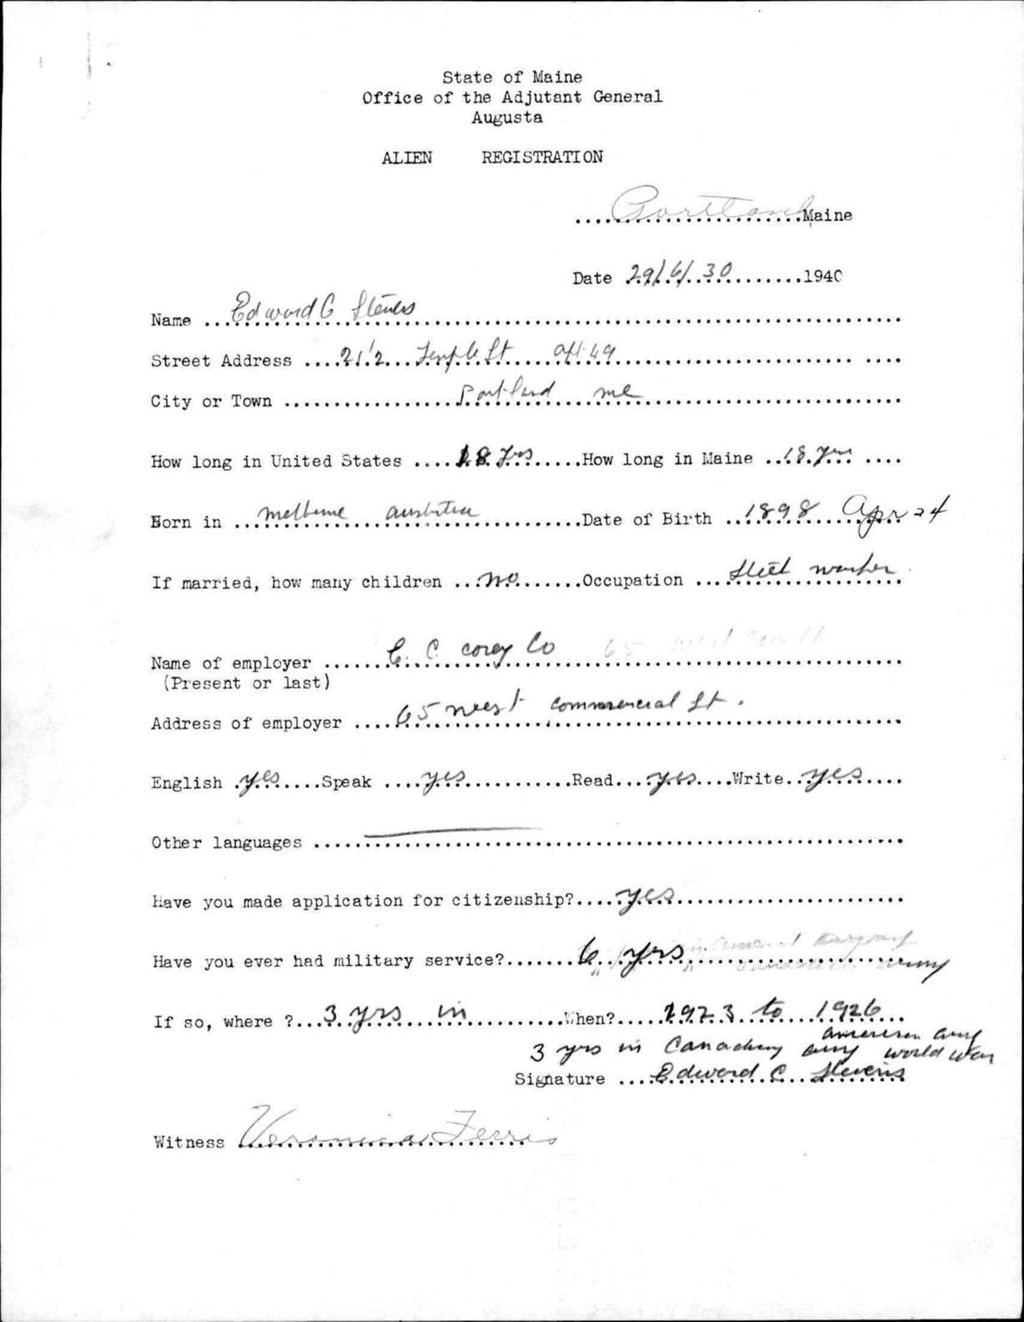 State of Maine
Office of the Adjutant General
Augusta
ALIEN REGISTRATION
....Portland....Maine
Date 29/6/30.........1940
Name ...Edward C Stevens...
Street Address ....21½...Temple St....apt 49...
City or Town ....Portland....me....
How long in United States ....18 yrs.....How long in Maine ..18 yrs....
Born in ...melbourne australia....Date of Birth ..1898 Apr 24
If married, how many children ...no.......Occupation ...Steel worker
Name of employer ......C. C. corey Co
(Present or last)
Address of employer ....65 west commercial St.
English .yes.....Speak ....yes............Read...yes....Write..yes....
Other languages ......
Have you made application for citizenship?....yes....
Have you ever had military service?.......6 yrs
If so, where ?...3 yrs...in..........When?....1923 to 1926
american army
3 yrs in Canadian army world war
Signature ....Edward C Stevens
Witness Veronica Ferris